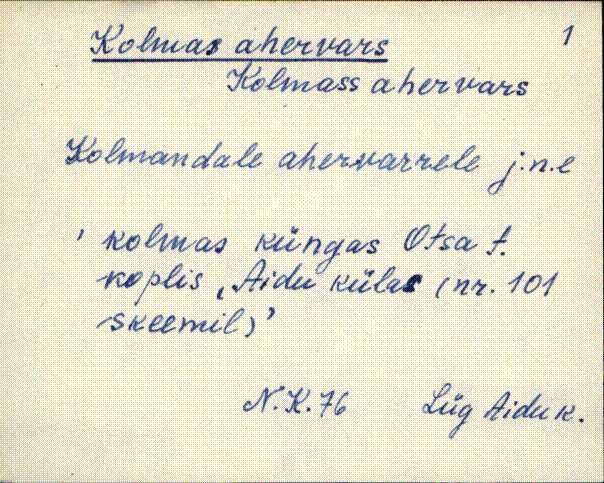 Kolmas ahervars 1
Kolmass ahervars
Kolmandale ahervarrele j.n.e
' kolmas küngas Otsa t.
koplis, Aidu külas (nr. 101
skeemil)'
N.K.76 Lüg Aidu k.